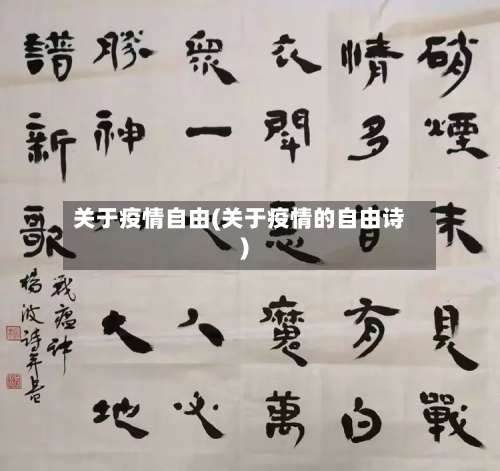 硝煙未見戰
情多昔有白
衣鬪惡魔萬
衆一人必
勝神大地
譜新歌
戰瘟神
楊波詩並書
关于疫情自由(关于疫情的自由诗
)